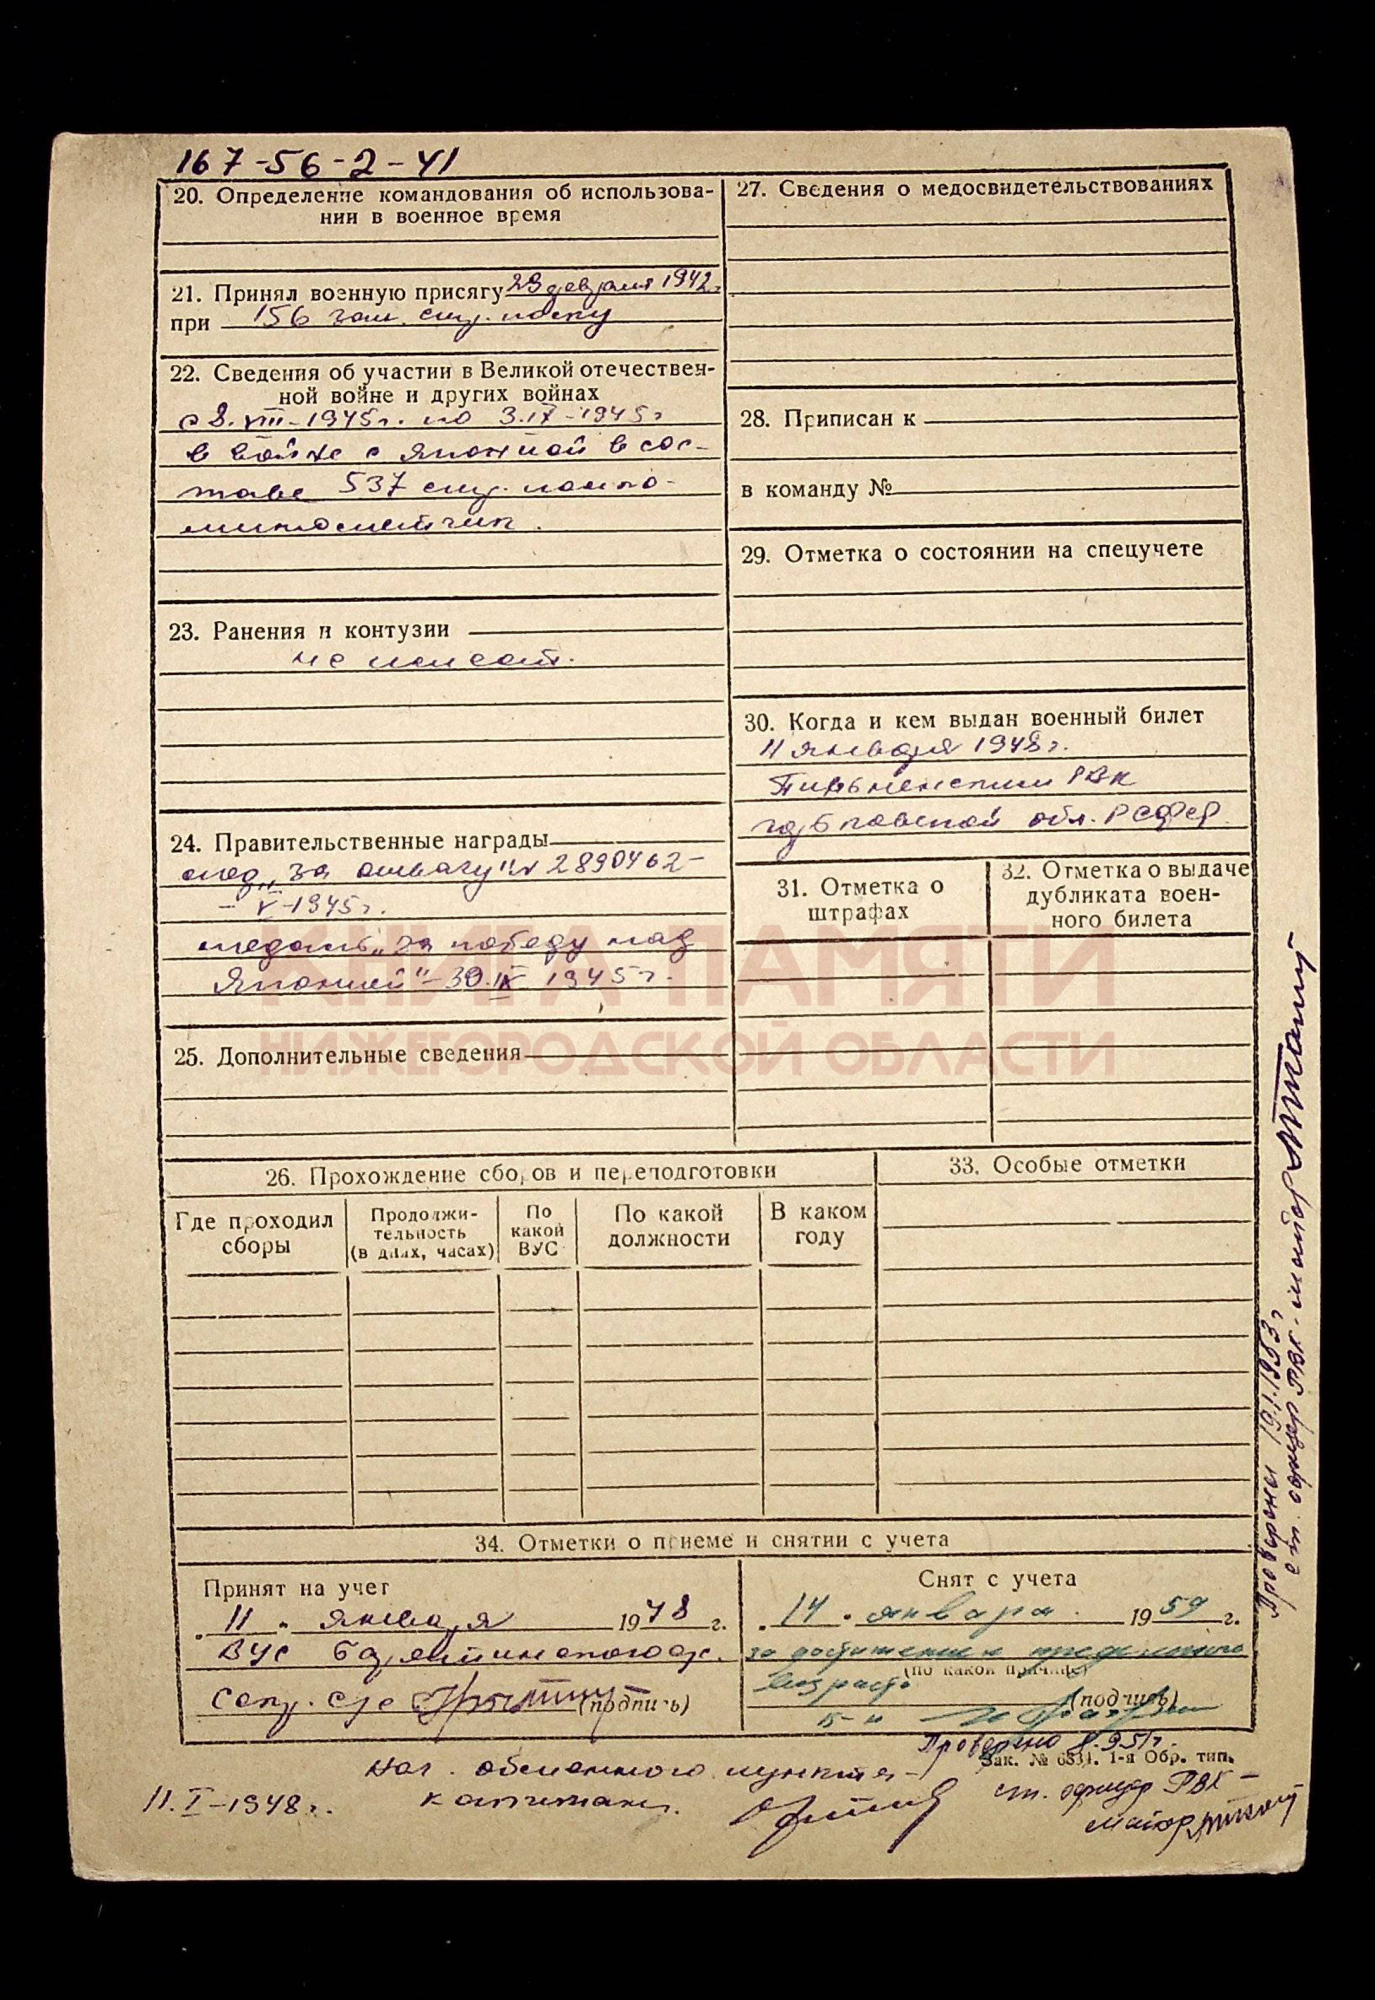 167-56-2-41
20. Определение командования об использова-
нии в военное время
21. Принял военную присягу 23 февраля 1942г.
при 156 зап. стр. полку
22. Сведения об участии в Великой отечествен-
ной войне и других войнах
с 8.VIII-1945г. по 3.IX-1945г
в войне с Японией в сос-
таве 537 стр. полка
минометчик.
23. Ранения и контузии
не имеет.
24. Правительственные награды
мед. "За отвагу" № 2890462-
- V-1945г.
медаль "За победу над
Японией" - 30.IX 1945г.
25. Дополнительные сведения
27. Сведения о медосвидетельствованиях
28. Приписан к
в команду №
29. Отметка о состоянии на спецучете
30. Когда и кем выдан военный билет
11 января 1948г.
Пильненским РВК
Горьковской обл. РСФСР.
31. Отметка о
штрафах
32. Отметка о выдаче
дубликата воен-
ного билета
КНИГА ПАМЯТИ
НИЖЕГОРОДСКОЙ ОБЛАСТИ
26. Прохождение сборов и переподготовки
Где проходил
сборы
Продолжи-
тельность
(в днях, часах)
По
какой
ВУС
По какой
должности
В каком
году
33. Особые отметки
34. Отметки о приеме и снятии с учета
Принят на учет
"11" января 1948 г.
ВУС
(подпись)
Снят с учета
"14" января 1959 г.
за достижением предельного
(по какой причине)
возраста
(подпись)
Проверено
Зак. № 6834. 1-я Обр. тип.
Нач. обменного пункта -
капитан.
11.I-1948г.
ст. офицер РВК -
майор
Проверен 19.1.1953г
ст. офицер РВК - майор